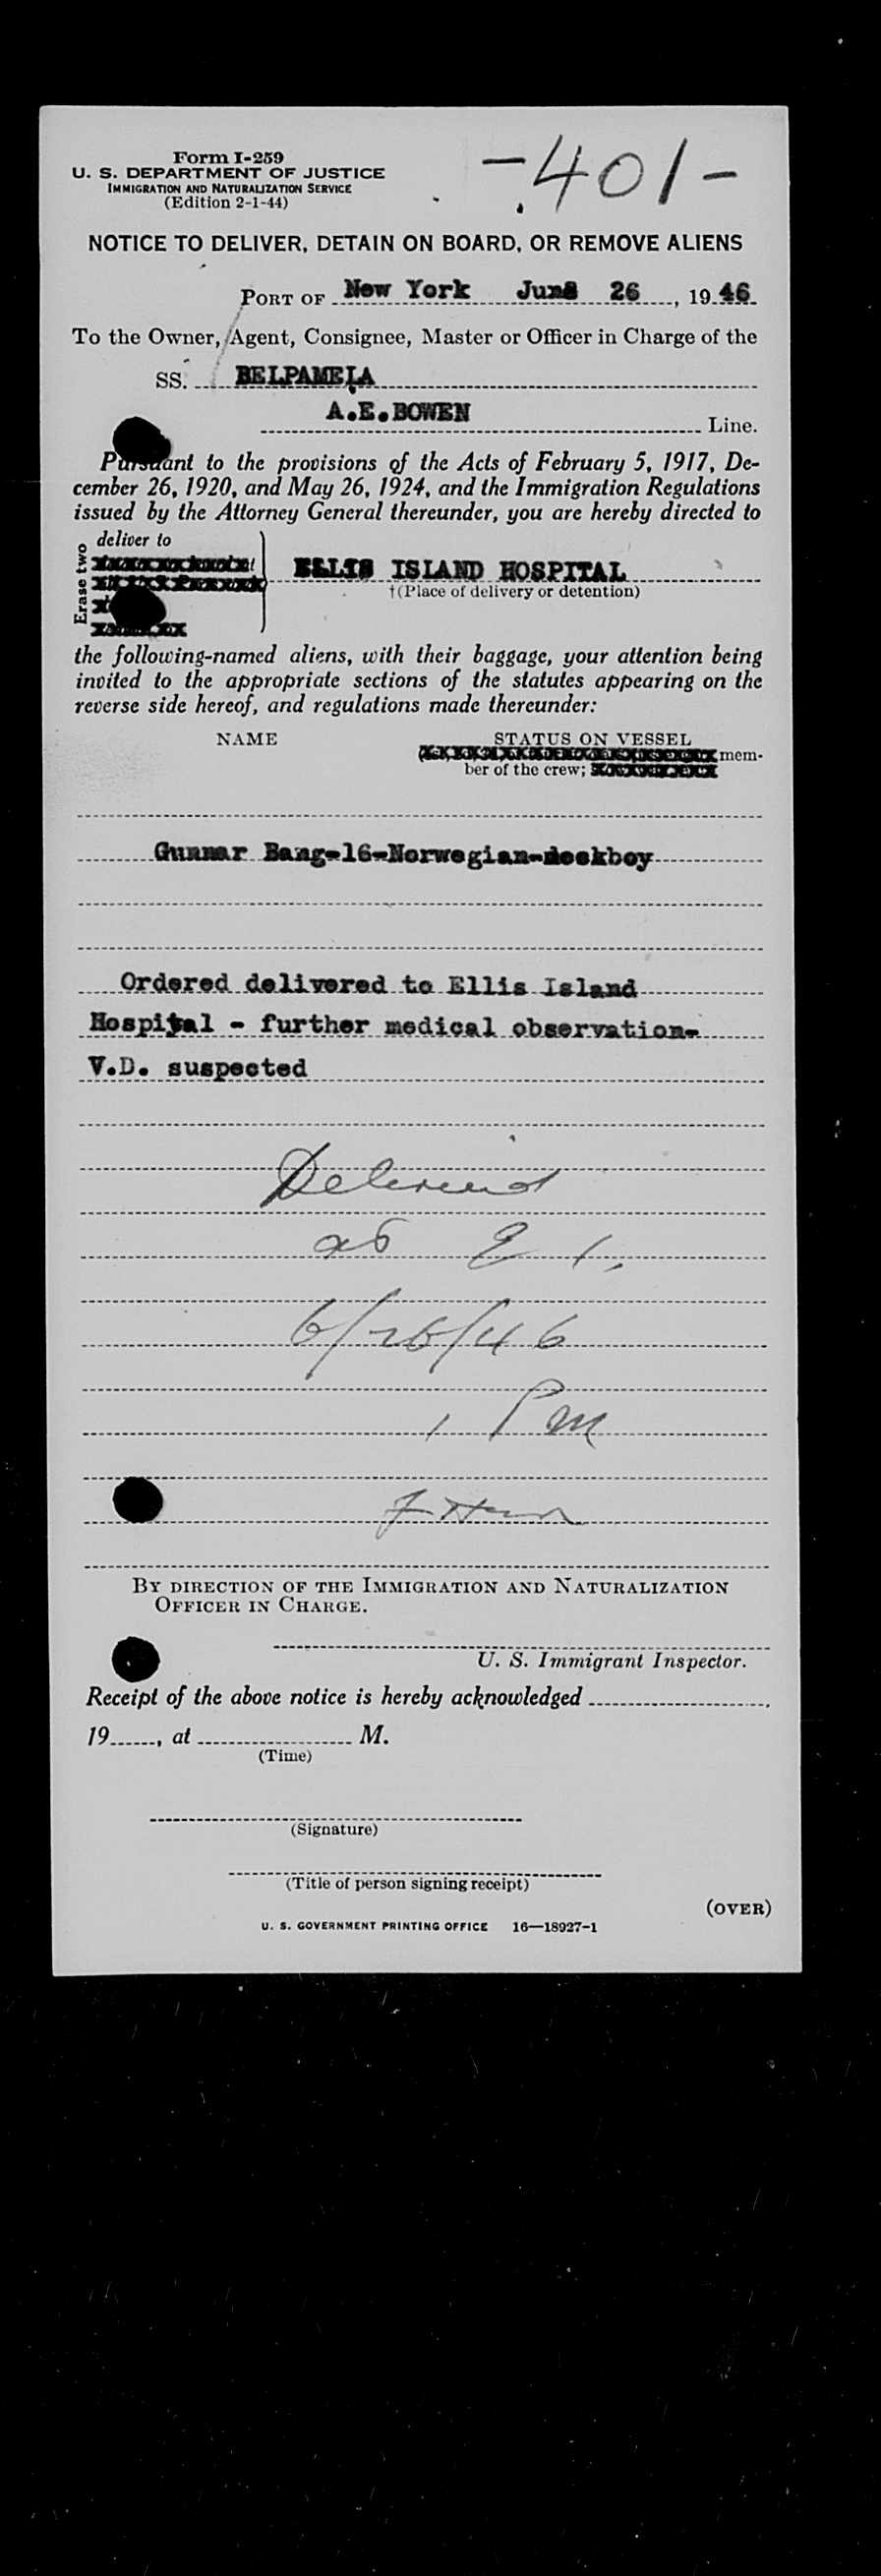 Form I-259
U. S. DEPARTMENT OF JUSTICE
IMMIGRATION AND NATURALIZATION SERVICE
(Edition 2-1-44)
-401-
NOTICE TO DELIVER, DETAIN ON BOARD, OR REMOVE ALIENS
PORT OF New York June 26, 1946
To the Owner, Agent, Consignee, Master or Officer in Charge of the
SS. BELPAMELA
A.E.BOWEN Line.
Pursuant to the provisions of the Acts of February 5, 1917, De-
cember 26, 1920, and May 26, 1924, and the Immigration Regulations
issued by the Attorney General thereunder, you are hereby directed to
Erase two
deliver to
ELLIS ISLAND HOSPITAL
†(Place of delivery or detention)
the following-named aliens, with their baggage, your attention being
invited to the appropriate sections of the statutes appearing on the
reverse side hereof, and regulations made thereunder:
NAME STATUS ON VESSEL
mem-
ber of the crew;
Gunnar Bang-16-Norwegian-deckboy
Ordered delivered to Ellis Island
Hospital - further medical observation-
V.D. suspected
Delivered
at E I,
6/26/46
1 Pm
BY DIRECTION OF THE IMMIGRATION AND NATURALIZATION
OFFICER IN CHARGE.
U. S. Immigrant Inspector.
Receipt of the above notice is hereby acknowledged
19......, at M.
(Time)
(Signature)
(Title of person signing receipt)
(OVER)
U. S. GOVERNMENT PRINTING OFFICE 16—18927-1